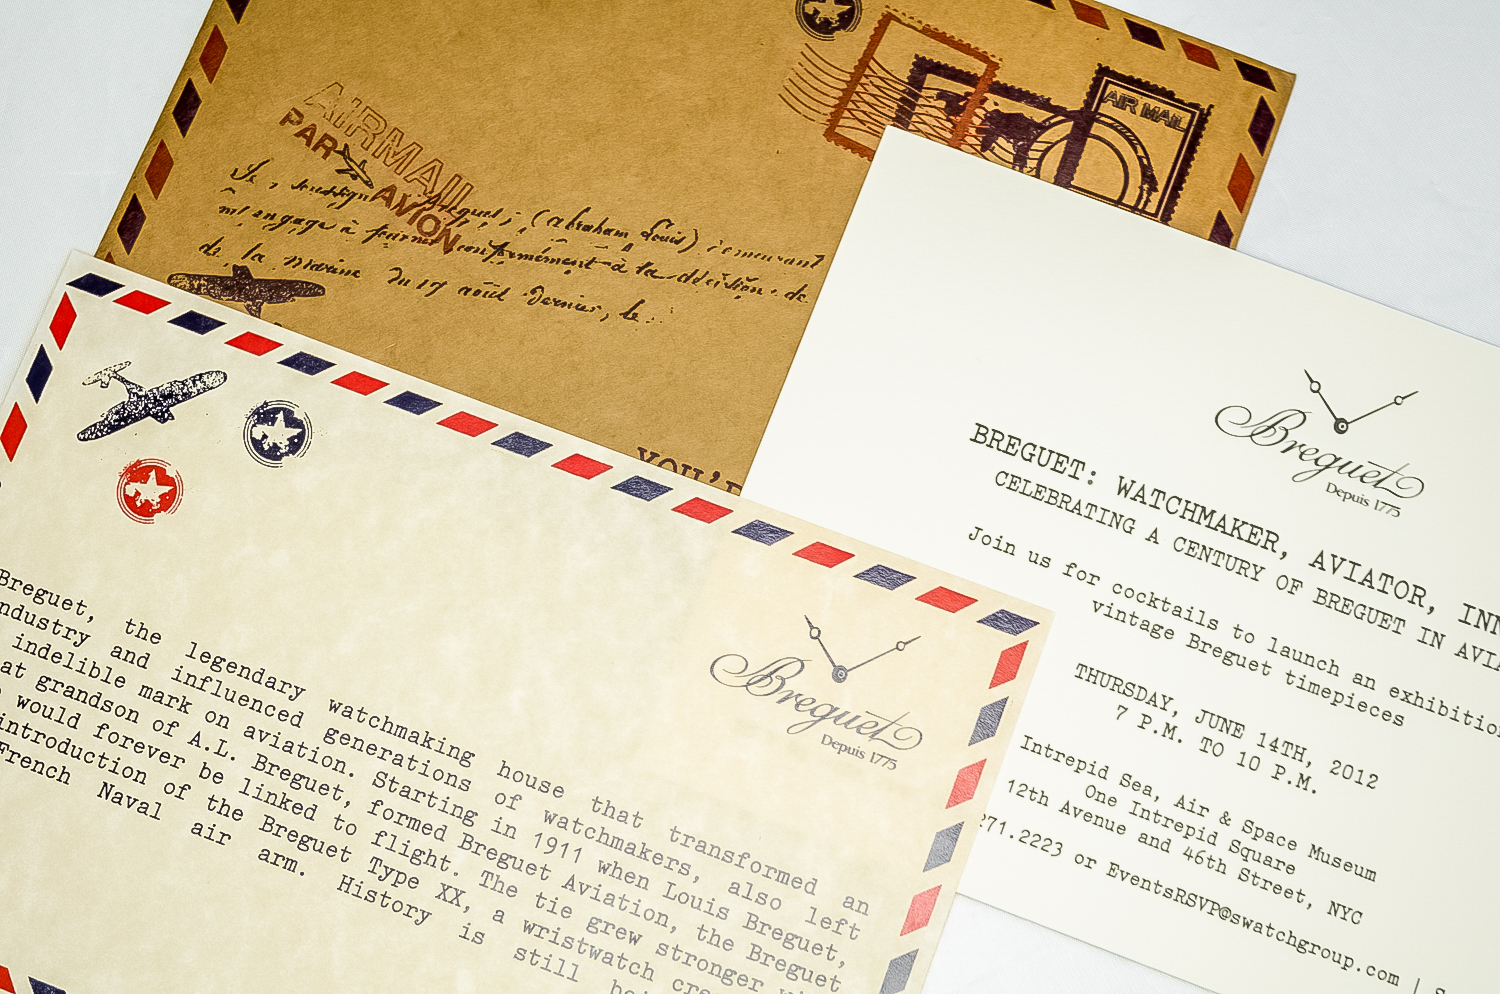 AIRMAIL
PAR AVION
AIR MAIL
(Abraham Louis) demeurant
m'engage à fournir conformément à la décision de
de la marine du 17 août dernier, le
YOU'
Breguet
Depuis 1775
BREGUET: WATCHMAKER, AVIATOR, INN
CELEBRATING A CENTURY OF BREGUET IN AVIA
Join us for cocktails to launch an exhibition
vintage Breguet timepieces
THURSDAY, JUNE 14TH, 2012
7 P.M. TO 10 P.M.
Intrepid Sea, Air & Space Museum
One Intrepid Square
12th Avenue and 46th Street, NYC
271.2223 or EventsRSVP@swatchgroup.com | S
Breguet
Depuis 1775
Breguet, the legendary watchmaking house that transformed an
ndustry and influenced generations of watchmakers, also left
indelible mark on aviation. Starting in 1911 when Louis Breguet,
at grandson of A.L. Breguet, formed Breguet Aviation, the Breguet
would forever be linked to flight. The tie grew stronger wi
introduction of the Breguet Type XX, a wristwatch cre
French Naval air arm. History is still bei